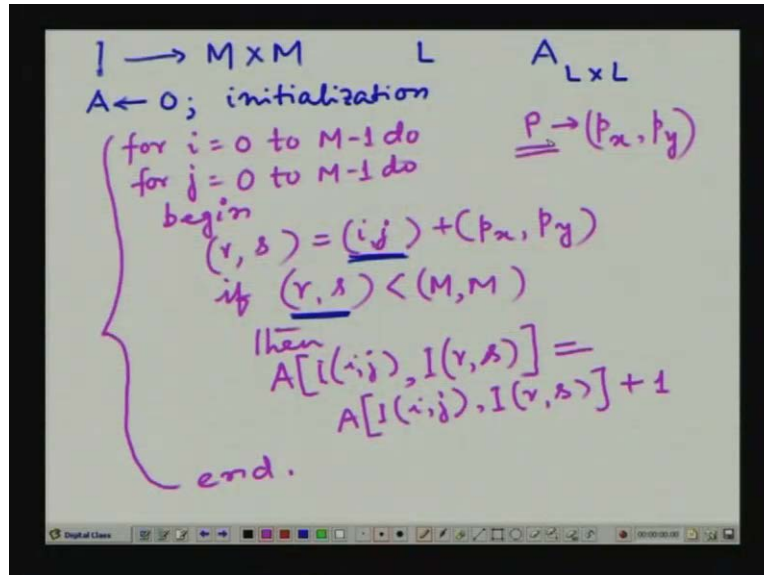 I → M×M L A L×L
A ← 0; initialization
for i = 0 to M-1 do P → (Px, Py)
for j = 0 to M-1 do
begin
(r, s) = (i,j) + (Px, Py)
if (r, s) < (M, M)
then
A[I(i,j), I(r, s)] =
A[I(i,j), I(r, s)] + 1
end.
Digital Class 00:00:00.00